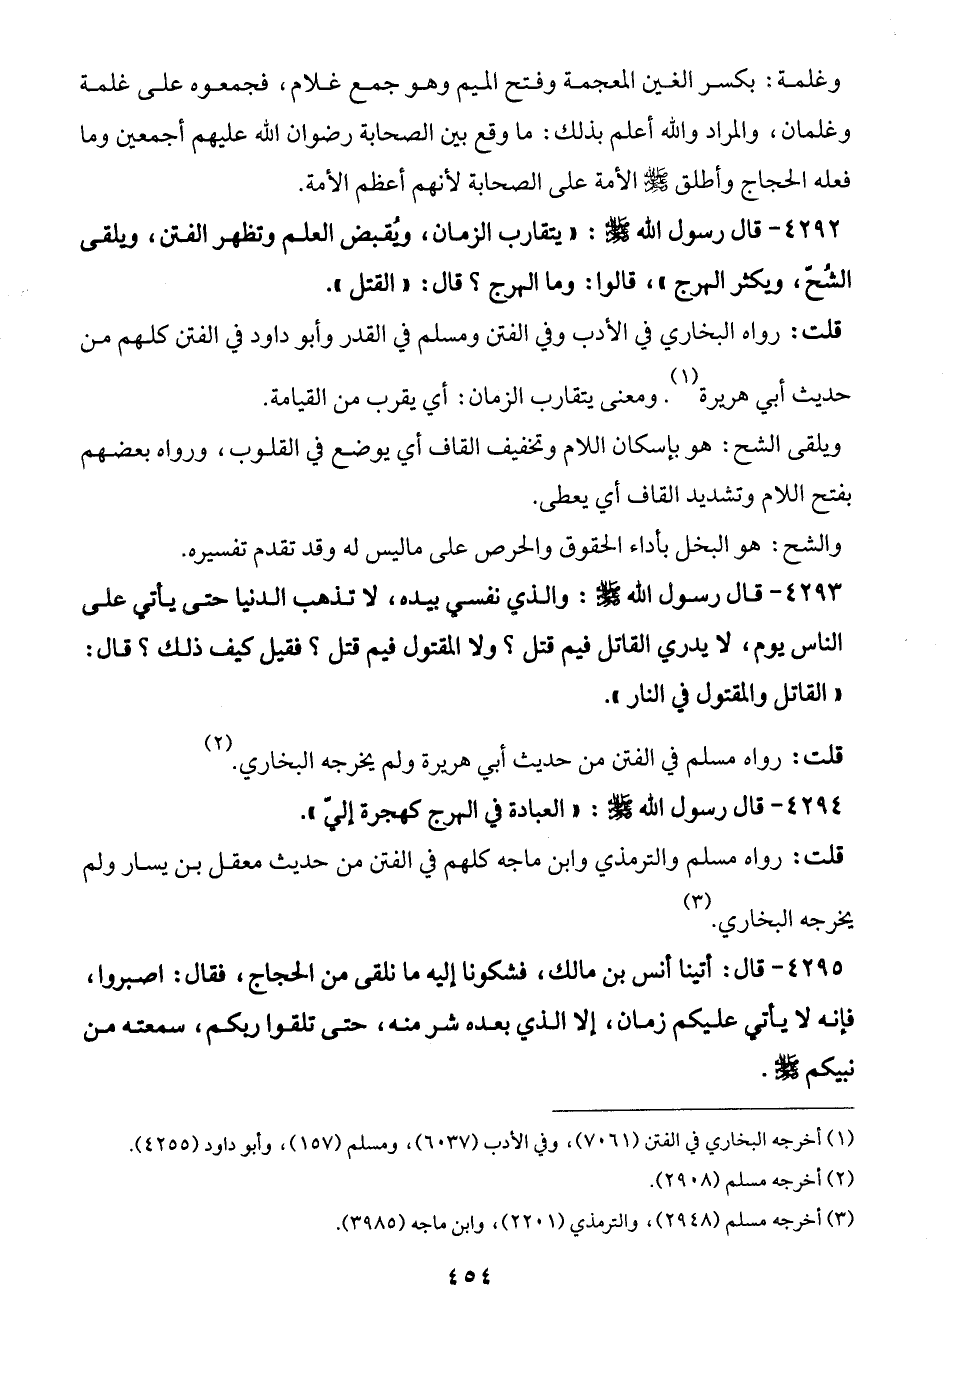 وغلمة: بكسر الغين المعجمة وفتح الميم وهو جمع غلام، فجمعوه على غلمة
وغلمان، والمراد والله أعلم بذلك: ما وقع بين الصحابة رضوان الله عليهم أجمعين وما
فعله الحجاج وأطلق ﷺ الأمة على الصحابة لأنهم أعظم الأمة.
٤٢٩٢- قال رسول الله ﷺ: «يتقارب الزمان، ويُقبض العلم وتظهر الفتن، ويلقى
الشُحّ، ويكثر الهرج»، قالوا: وما الهرج؟ قال: «القتل».
قلت: رواه البخاري في الأدب وفي الفتن ومسلم في القدر وأبو داود في الفتن كلهم من
حديث أبي هريرة(١). ومعنى يتقارب الزمان: أي يقرب من القيامة.
ويلقى الشح: هو بإسكان اللام وتخفيف القاف أي يوضع في القلوب، ورواه بعضهم
بفتح اللام وتشديد القاف أي يعطى.
والشح: هو البخل بأداء الحقوق والحرص على ماليس له وقد تقدم تفسيره.
٤٢٩٣- قال رسول الله ﷺ: والذي نفسي بيده، لا تذهب الدنيا حتى يأتي على
الناس يوم، لا يدري القاتل فيم قتل؟ ولا المقتول فيم قتل؟ فقيل كيف ذلك؟ قال:
«القاتل والمقتول في النار».
قلت: رواه مسلم في الفتن من حديث أبي هريرة ولم يخرجه البخاري.(٢)
٤٢٩٤- قال رسول الله ﷺ: «العبادة في الهرج كهجرة إليّ».
قلت: رواه مسلم والترمذي وابن ماجه كلهم في الفتن من حديث معقل بن يسار ولم
يخرجه البخاري.(٣)
٤٢٩٥- قال: أتينا أنس بن مالك، فشكونا إليه ما نلقى من الحجاج، فقال: اصبروا،
فإنه لا يأتي عليكم زمان، إلا الذي بعده شر منه، حتى تلقوا ربكم، سمعته من
نبيكم ﷺ.
(١) أخرجه البخاري في الفتن (٧٠٦١)، وفي الأدب (٦٠٣٧)، ومسلم (١٥٧)، وأبو داود (٤٢٥٥).
(٢) أخرجه مسلم (٢٩٠٨).
(٣) أخرجه مسلم (٢٩٤٨)، والترمذي (٢٢٠١)، وابن ماجه (٣٩٨٥).
٤٥٤